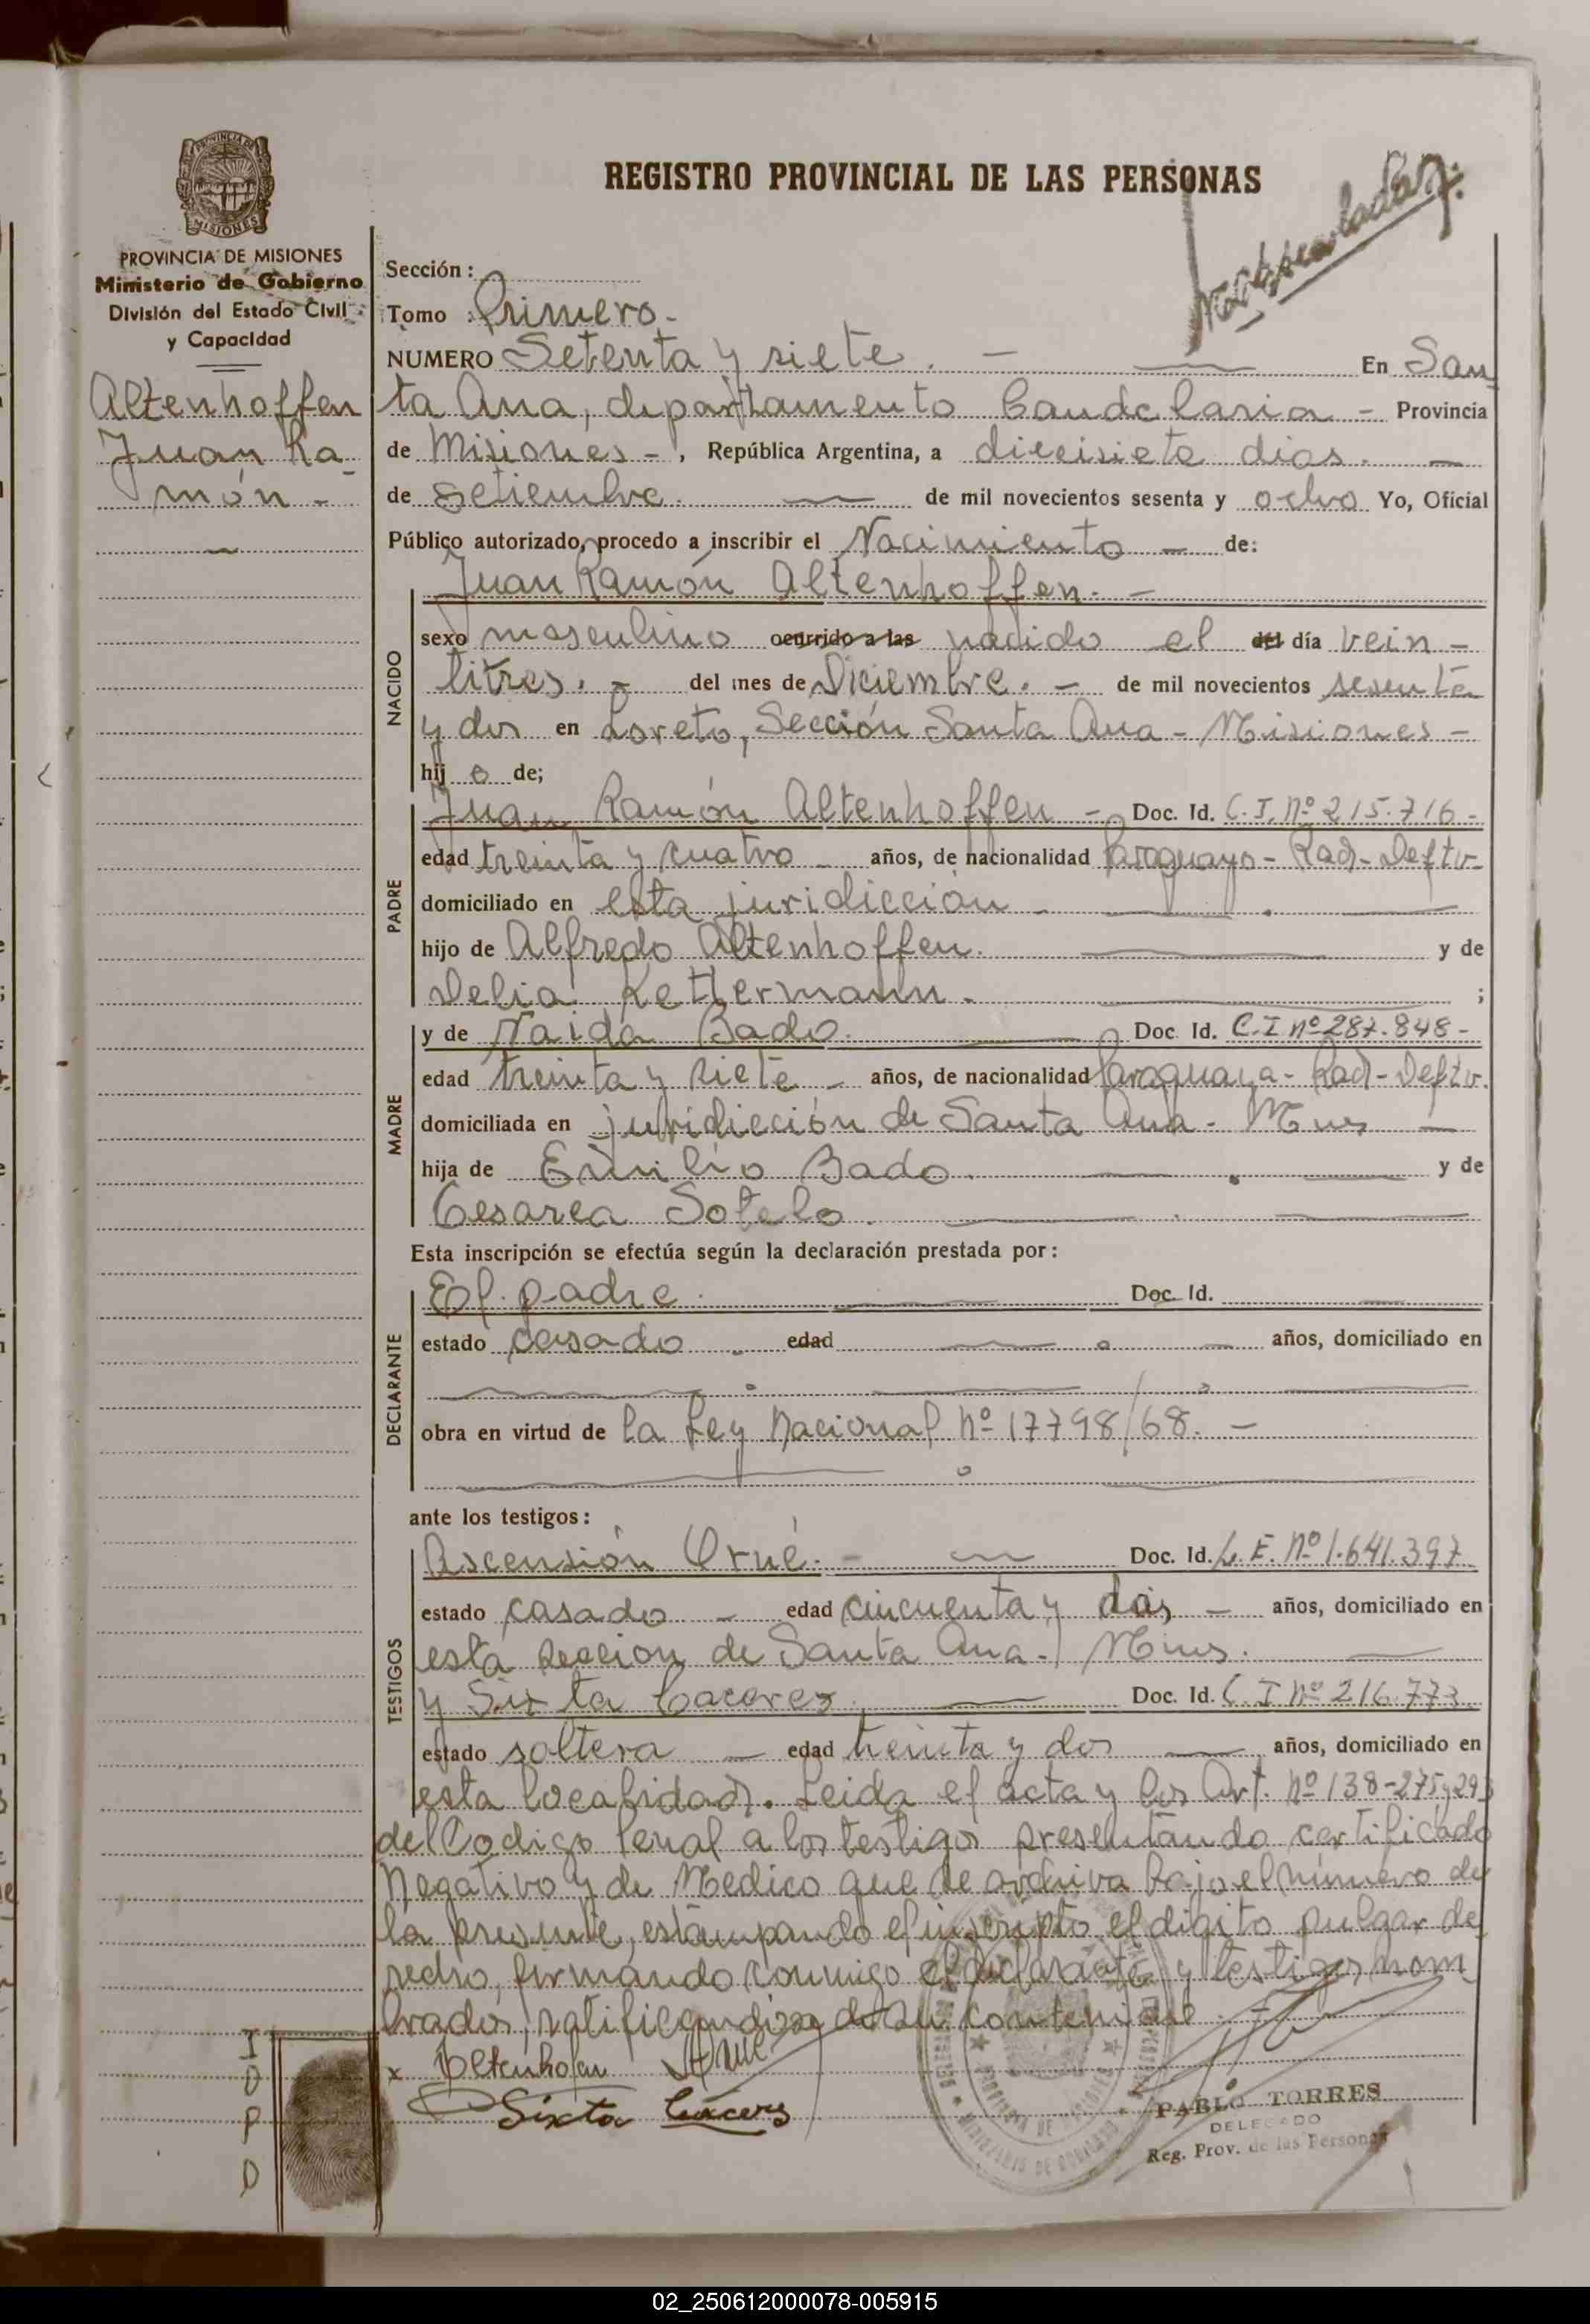 PROVINCIA DE MISIONES
Ministerio de Gobierno
División del Estado Civil
y Capacidad
Altenhoffen
Juan Ra-
món -
REGISTRO PROVINCIAL DE LAS PERSONAS
Sección:
Tomo : Primero.-
NUMERO Setenta y siete. - En San
ta Ana, departamento Candelaria - Provincia
de Misiones -, República Argentina, a diecisiete dias. -
de setiembre. de mil novecientos sesenta y ocho Yo, Oficial
Público autorizado, procedo a inscribir el Nacimiento - de:
Juan Ramón Altenhoffen. -
NACIDO
sexo masculino ocurrido a las nacido el del día vein-
titres. - del mes de Diciembre. - de mil novecientos sesenta
y dos en Loreto, Sección Santa Ana - Misiones -
hij o de;
PADRE
Juan Ramón Altenhoffen - Doc. Id. C.I. Nº 215.716-
edad treinta y cuatro - años, de nacionalidad Paraguayo - Rad - Deftv-
domiciliado en esta juridicción -
hijo de Alfredo Altenhoffen. y de
Delia Kettermann. ;
MADRE
y de Naida Bado. Doc. Id. C.I nº 287.848-
edad treinta y siete - años, de nacionalidad Paraguaya - Rad - Deftv.
domiciliada en juridicción de Santa Ana - Mnes -
hija de Emilio Bado. y de
Cesarea Sotelo.
Esta inscripción se efectúa según la declaración prestada por:
DECLARANTE
El padre. Doc. Id.
estado casado. edad años, domiciliado en
obra en virtud de la Ley Nacional Nº 17798/68. -
ante los testigos:
TESTIGOS
Ascensión Orué. - Doc. Id. L.E. Nº 1.641.397
estado casado - edad cincuenta y dos - años, domiciliado en
esta sección de Santa Ana - Mnes.
y Sixta Caceres. Doc. Id. C I Nº 216.773
estado soltera - edad treinta y dos años, domiciliado en
esta localidad. Leida el acta y los Art. Nº 138-275 y 293
del Codigo Penal a los testigos presentando certificado
Negativo y de Medico que se archiva bajo el número de
la presente, estampando el inscripto el digito pulgar de-
recho, firmando conmigo el declarante y testigos nom
brados, ratificandose de su contenido
I
D
P
D
x Altenhofen Orué
Sixta Cáceres
PABLO TORRES
DELEGADO
Reg. Prov. de las Personas
02_250612000078-005915